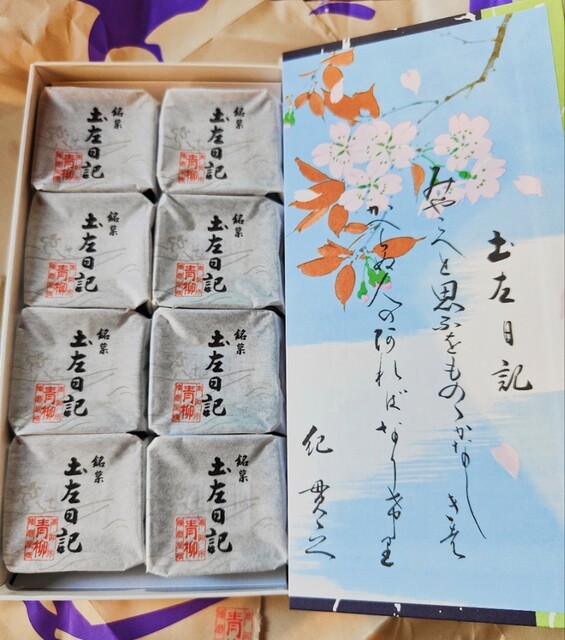 土左日記
みやこへと思ふをものゝかなしきは
かへらぬ人のあればなりけり
紀貫之
銘菓
土左日記
青柳
銘菓
土左日記
青柳
銘菓
土左日記
青柳
銘菓
土左日記
青柳
銘菓
土左日記
青柳
銘菓
土左日記
青柳
銘菓
土左日記
青柳
銘菓
土左日記
青柳
青